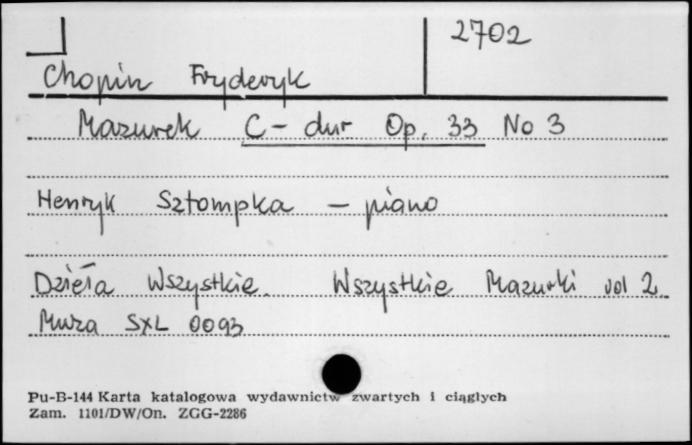 2702
Chopin Fryderyk
Mazurek C-dur Op. 33 No 3
Henryk Sztompka – piano
Dzieła Wszystkie. Wszystkie Mazurki vol 2
Muza SXL 0093
Pu-B-144 Karta katalogowa wydawnictw zwartych i ciągłych
Zam. 1101/DW/On. ZGG-2286